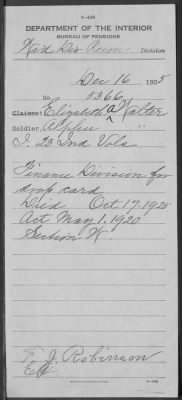 3-498
DEPARTMENT OF THE INTERIOR
BUREAU OF PENSIONS
Division
Dec 16, 1925
No. 5366
Claimant Elizabeth A Walter
Soldier, Alpheu "
I. 23 Ind Vols
Finance Division for
drop card
Died Oct. 17, 1925
Act May 1, 1920
Section
J Robinson